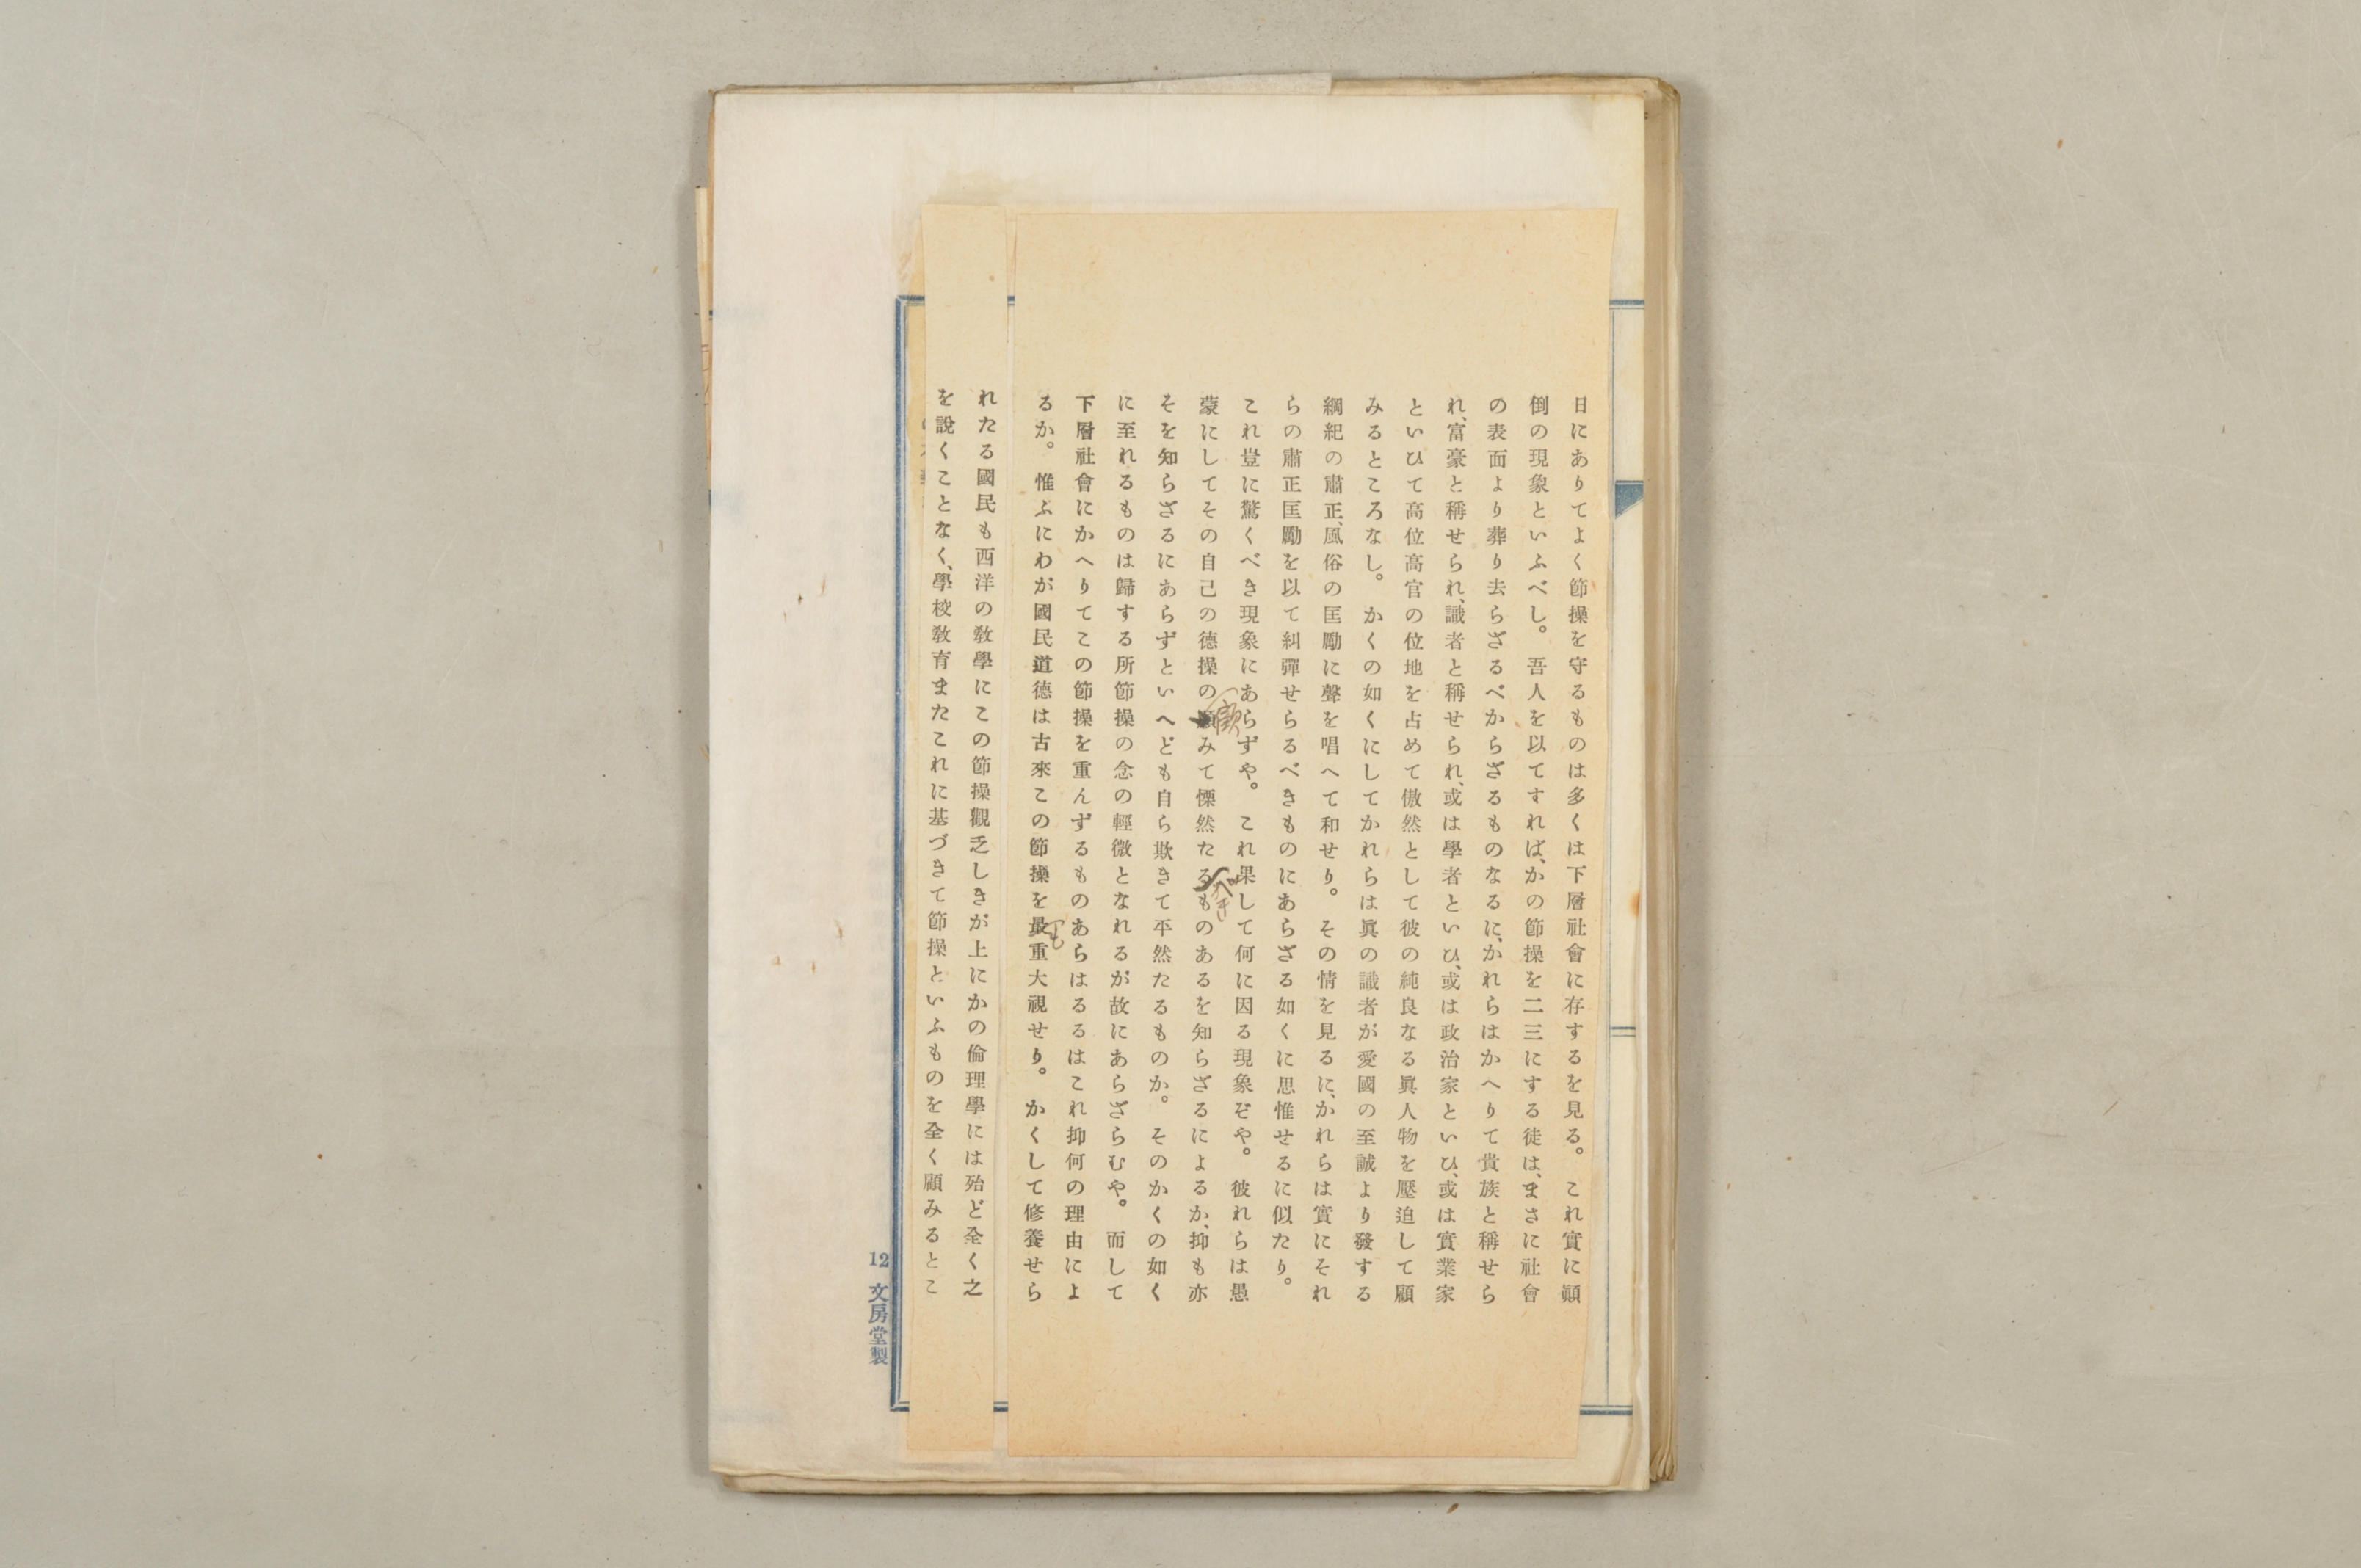 日にありてよく節操を守るものは多くは下層社會に存するを見る。これ實に顚
倒の現象といふべし。吾人を以てすれば、かの節操を二三にする徒は、まさに社會
の表面より葬り去らざるべからざるものなるに、かれらはかへりて貴族と稱せら
れ、富豪と稱せられ、識者と稱せられ、或は學者といひ、或は政治家といひ、或は實業家
といひて高位高官の位地を占めて傲然として彼の純良なる眞人物を壓迫して顧
みるところなし。かくの如くにしてかれらは眞の識者が愛國の至誠より發する
綱紀の肅正、風俗の匡勵に聲を唱へて和せり。その情を見るに、かれらは實にそれ
らの肅正匡勵を以て糾彈せらるべきものにあらざる如くに思惟せるに似たり。
これ豈に驚くべき現象にあらずや。これ果して何に因る現象ぞや。彼れらは愚
蒙にしてその自己の德操のみて慄然たるものあるを知らざるによるか、抑も亦
べき
そを知らざるにあらずといへども自ら欺きて平然たるものか。そのかくの如く
に至れるものは歸する所節操の念の輕微となれるが故にあらざらむや。而して
下層社會にかへりてこの節操を重んずるものあらはるるはこれ抑何の理由によ
るか。惟ふにわが國民道德は古來この節操を最重大視せり。かくして修養せら
も
れたる國民も西洋の敎學にこの節操觀乏しきが上にかの倫理學には殆ど全く之
を說くことなく、學校敎育またこれに基づきて節操といふものを全く顧みるとこ
12 文房堂製